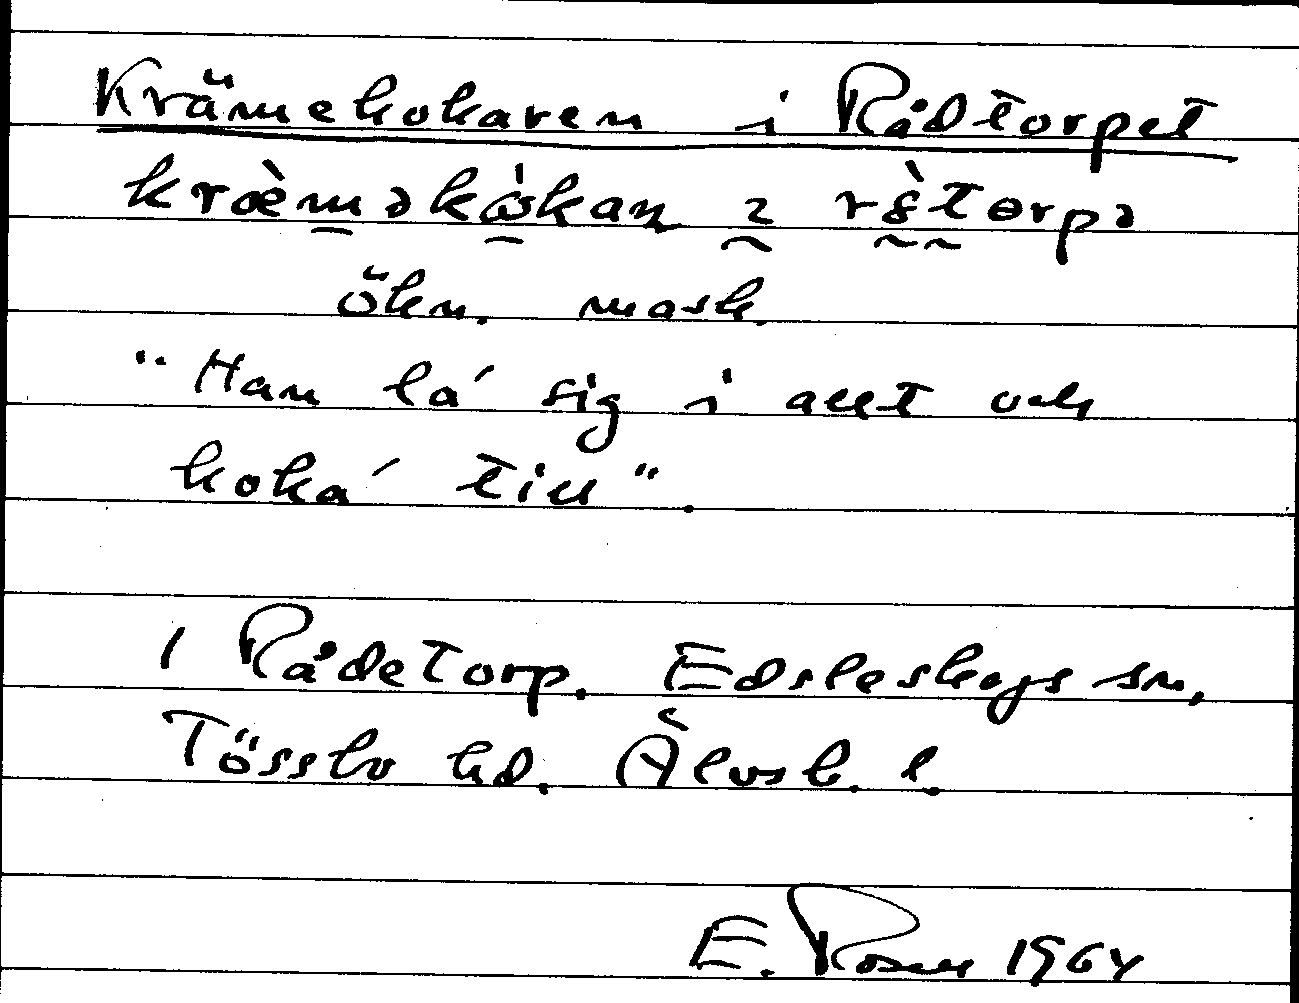 Krämekokaren i Rådtorpet
kræ̀məkå̀kan ɩ rɞ̀torpə
ökn. mask.
"Han la' sig i allt och
koka' till".
1 Rådetorp. Edsleskogs sn,
Tössbo hd. Älvsb. l.
E. Rosell 1964